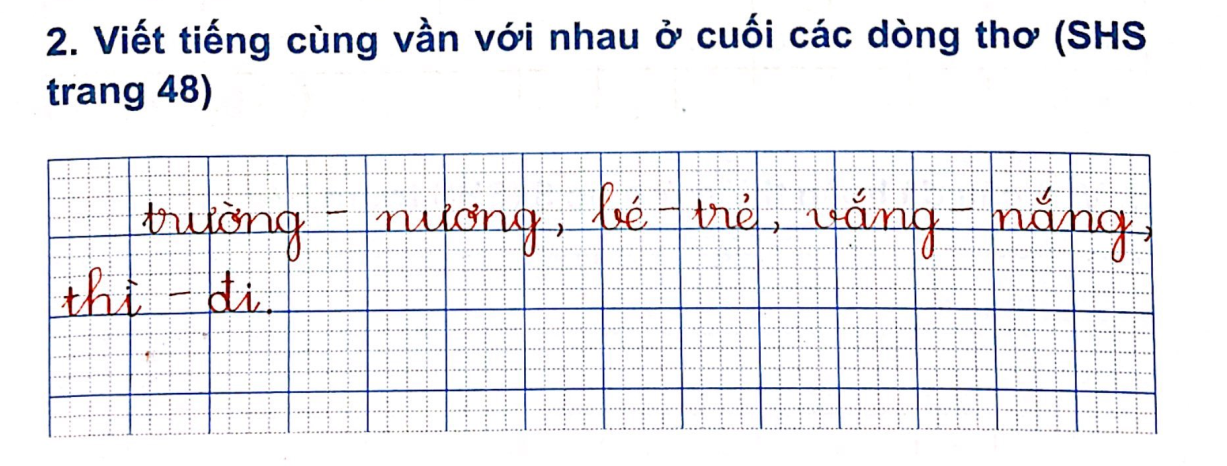 2. Viết tiếng cùng vần với nhau ở cuối các dòng thơ (SHS
trang 48)
trường - nương, bé - trẻ, vắng - nắng,
thì - đi.